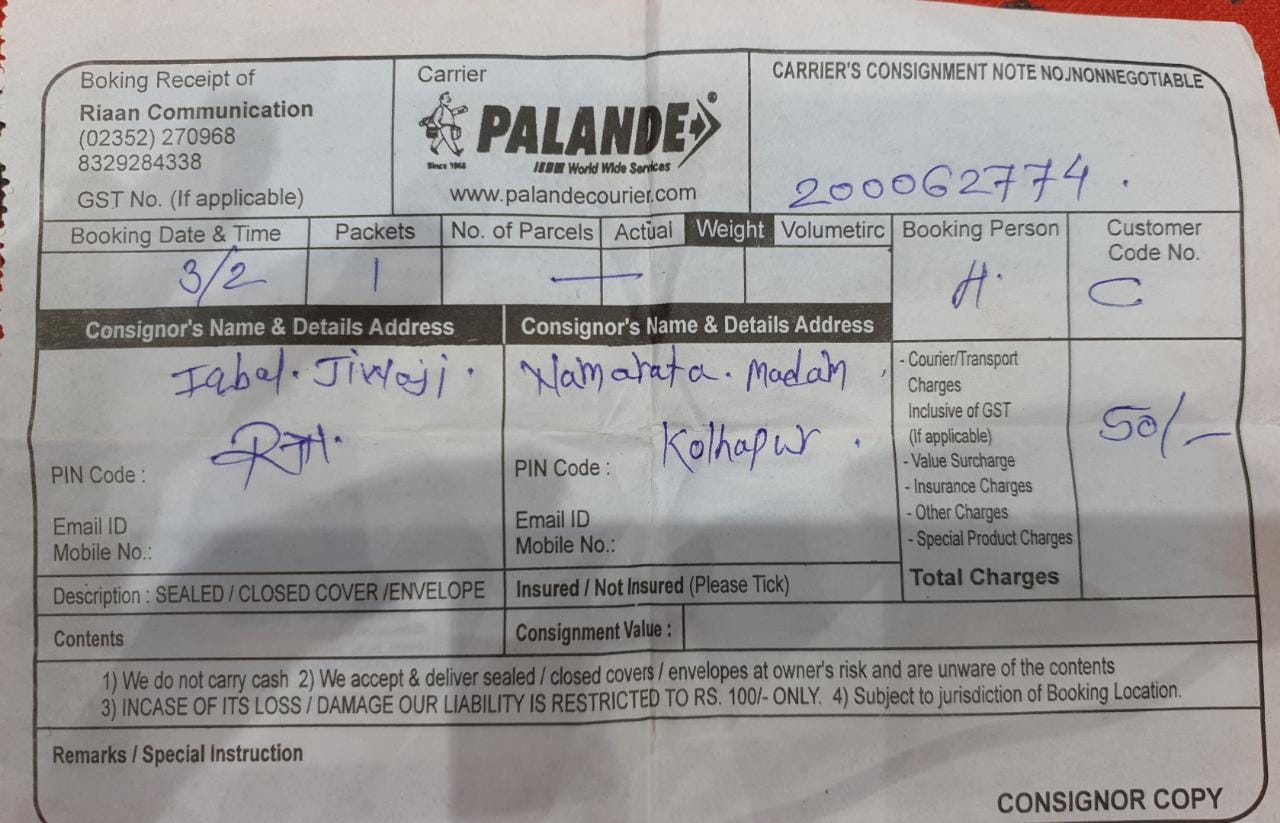 Boking Receipt of
Riaan Communication
(02352) 270968
8329284338
GST No. (If applicable)
Carrier
Since 1968
PALANDE
World Wide Services
www.palandecourier.com
CARRIER'S CONSIGNMENT NOTE NO./NONNEGOTIABLE
200062774.
Booking Date & Time
3/2
Packets
1
No. of Parcels
—
Actual Weight Volumetirc
Booking Person
H.
Customer
Code No.
C
Consignor's Name & Details Address
Iqbal. Jiwaji.
PIN Code :
Email ID
Mobile No.:
Consignor's Name & Details Address
Namarata. Madam
Kolhapur.
PIN Code :
Email ID
Mobile No.:
- Courier/Transport
Charges
Inclusive of GST
(If applicable)
- Value Surcharge
- Insurance Charges
- Other Charges
- Special Product Charges
Total Charges
50/-
Description : SEALED / CLOSED COVER /ENVELOPE
Insured / Not Insured (Please Tick)
Contents
Consignment Value :
1) We do not carry cash 2) We accept & deliver sealed / closed covers / envelopes at owner's risk and are unware of the contents
3) INCASE OF ITS LOSS / DAMAGE OUR LIABILITY IS RESTRICTED TO RS. 100/- ONLY. 4) Subject to jurisdiction of Booking Location.
Remarks / Special Instruction
CONSIGNOR COPY